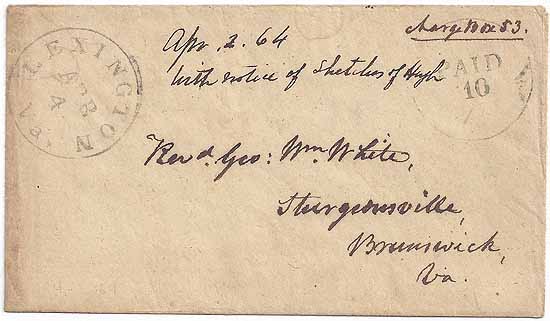 charge Box 53.
Apr. 2. 64
with notice of Sketches of Hugh
LEXINGTON Va.
APR
4
PAID
10
Revd. Geo: Wm. White,
Sturgeonsville,
Brunswick,
Va.